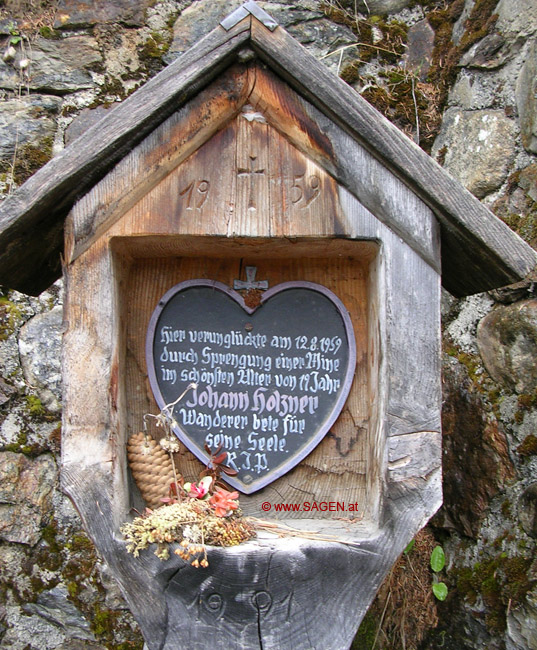 19 59
Hier verunglückte am 12.8.1959
durch Sprengung einer Mine
im schönsten Alter von 17 Jahr
Johann Holzner
Wanderer bete für
seine Seele.
R.I.P.
© www.SAGEN.at
1991